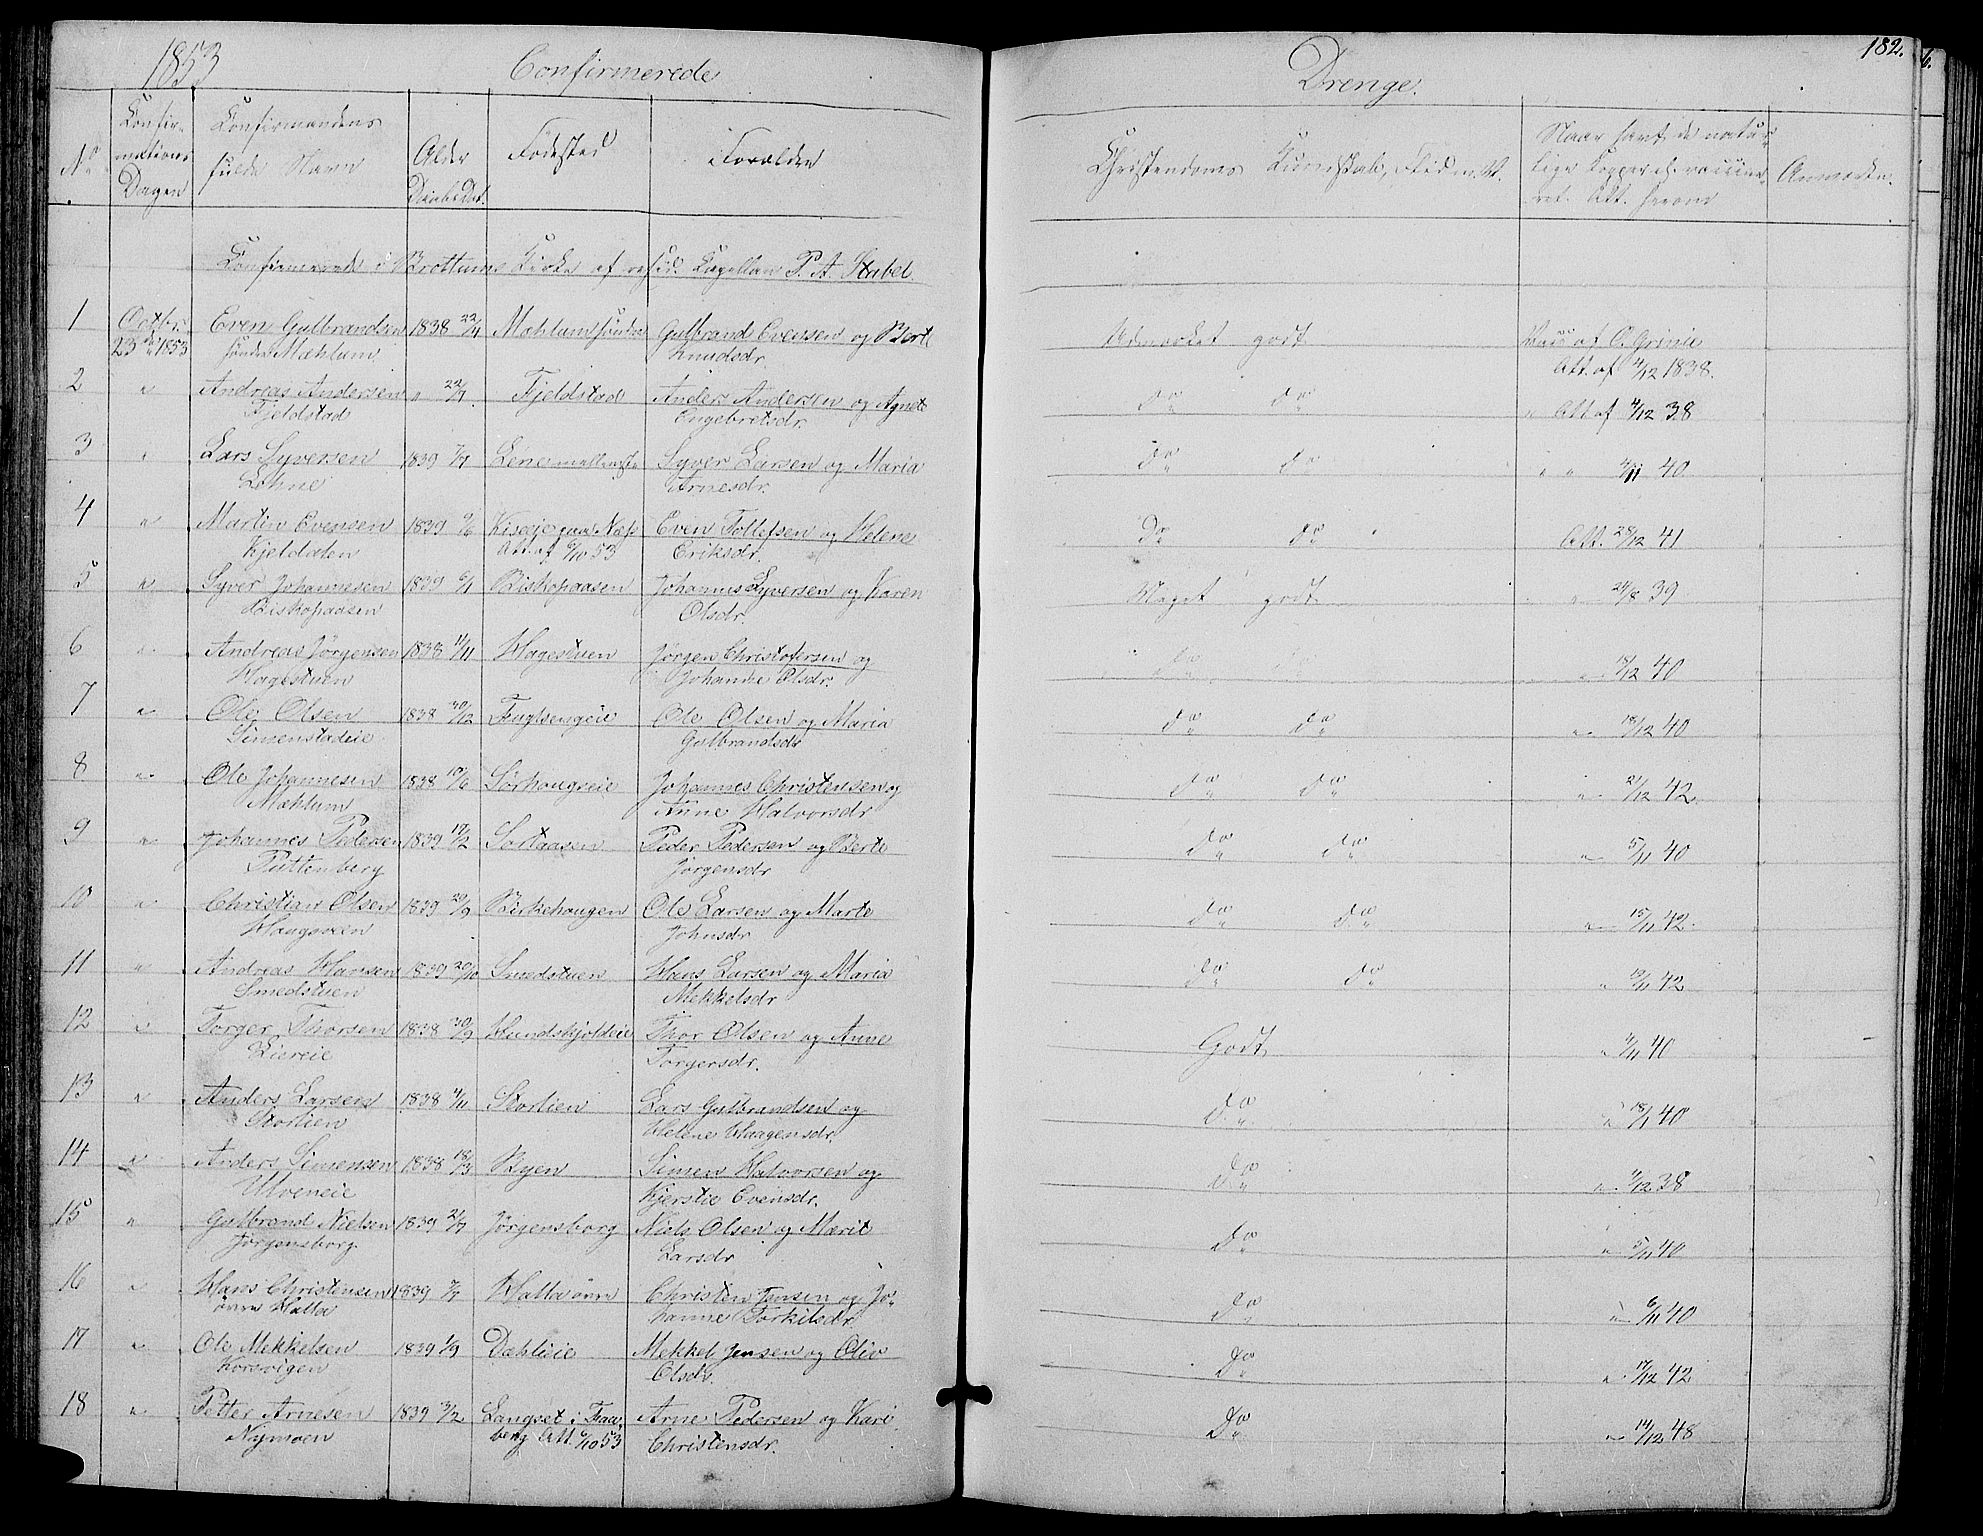 1853 Confirmerede Drenge. 182.
No Confirmations Dagen Confirmandens fulde Navn Alder Födested Forældre Christendoms Kundskab, Flid m. V. Naar havt de naturlige Kopper el. vaccineret. Att. herom Anmærkn.
Confirmerede i Brottums Kirke af resid. Kapellan P. A. Stabel
1 Octbr. Even Gulbrandsen 1838 22/4 Mæhlum söndre Gulbrand Evensen og Berte Udmærket godt Vacc af O. Grinie
23de 1853 söndre Mæhlum Knudsdr. Att. af 4/12 1838.
2 " Andreas Andersen " 22/7 Fjeldstad Anders Andersen og Agnete do do " Att af 4/12 38
Fjeldstad Engebretsdr.
3 " Lars Syversen 1839 7/7 Lene Syver Larsen og Maria do do " " 4/11 40
Lohne Arnesdr.
4 " Martin Evensen 1839 9/6 Kiseeie paa Næs Even Tollefsen og Helene Do do Att. 28/12 41
Kjeldalen Att. af 6/10 53 Eriksdr.
5 " Syver Johannesen 1839 6/1 Biskopaasen Johannes Syversen og Karen Meget godt " 24/8 39
Biskopaasen Olsdr.
6 " Andreas Jörgensen 1838 11/11 Hagestuen Jörgen Christofersen og do do " 18/12 40
Hagestuen Johanne Olsdr.
7 " Ole Olsen 1838 30/12 Fuglsengeie Ole Olsen og Maria do do " 18/12 40
Simenstadeie Gulbrandsdr
8 " Ole Johannesen 1838 10/6 Sörhougseie Johannes Christensen og do do " 21/12 42
Mæhlum Anne Halvorsdr
9 " Johannes Pedersen 1839 17/2 Sortaasen Peder Pedersen og Berte do do " 5/11 40
Puttenberg Jörgensdr
10 " Christian Olsen 1839 20/9 Birkehaugen Ole Larsen og Marte do do " 15/11 42
Haugsveen Johnsdr
11 " Andreas Hansen 1839 20/10 Smedstuen Hans Larsen og Maria do do " 12/11 42
Smedstuen Mekkelsdr
12 " Torger Thorsen 1838 30/9 Hundskjoldeie Thor Olsen og Anne Godt " 4/11 40
Liereie Torgersdr.
13 " Anders Larsen 1838 4/11 Stortien Lars Gulbrandsen og do " 18/1 40
Stortien Helene Haagensdr.
14 " Anders Simensen 1838 18/3 Byen Simen Halvorsen og do " 4/12 38
Ulveneie Kjerstie Evensdr.
15 " Gulbrand Nielsen 1839 21/7 Jörgensborg Niels Olsen og Marit do " 5/11 40
Jörgensborg Larsdr
16 " Hans Christensen 1839 7/7 Hatta övre Christen Jensen og Jo- do " 6/11 40
övre Hatta hanne Torkilsdr.
17 " Ole Mekkelsen 1839 1/9 Dahleie Mekkel Jensen og Oliv do " 17/12 42
Korsvigen Olsdr.
18 " Petter Arnesen 1839 3/2 Langset i Faa- Arne Pedersen og Kari Do " 14/12 48
Nymoen berg Att. 6/10 53 Christensdr.